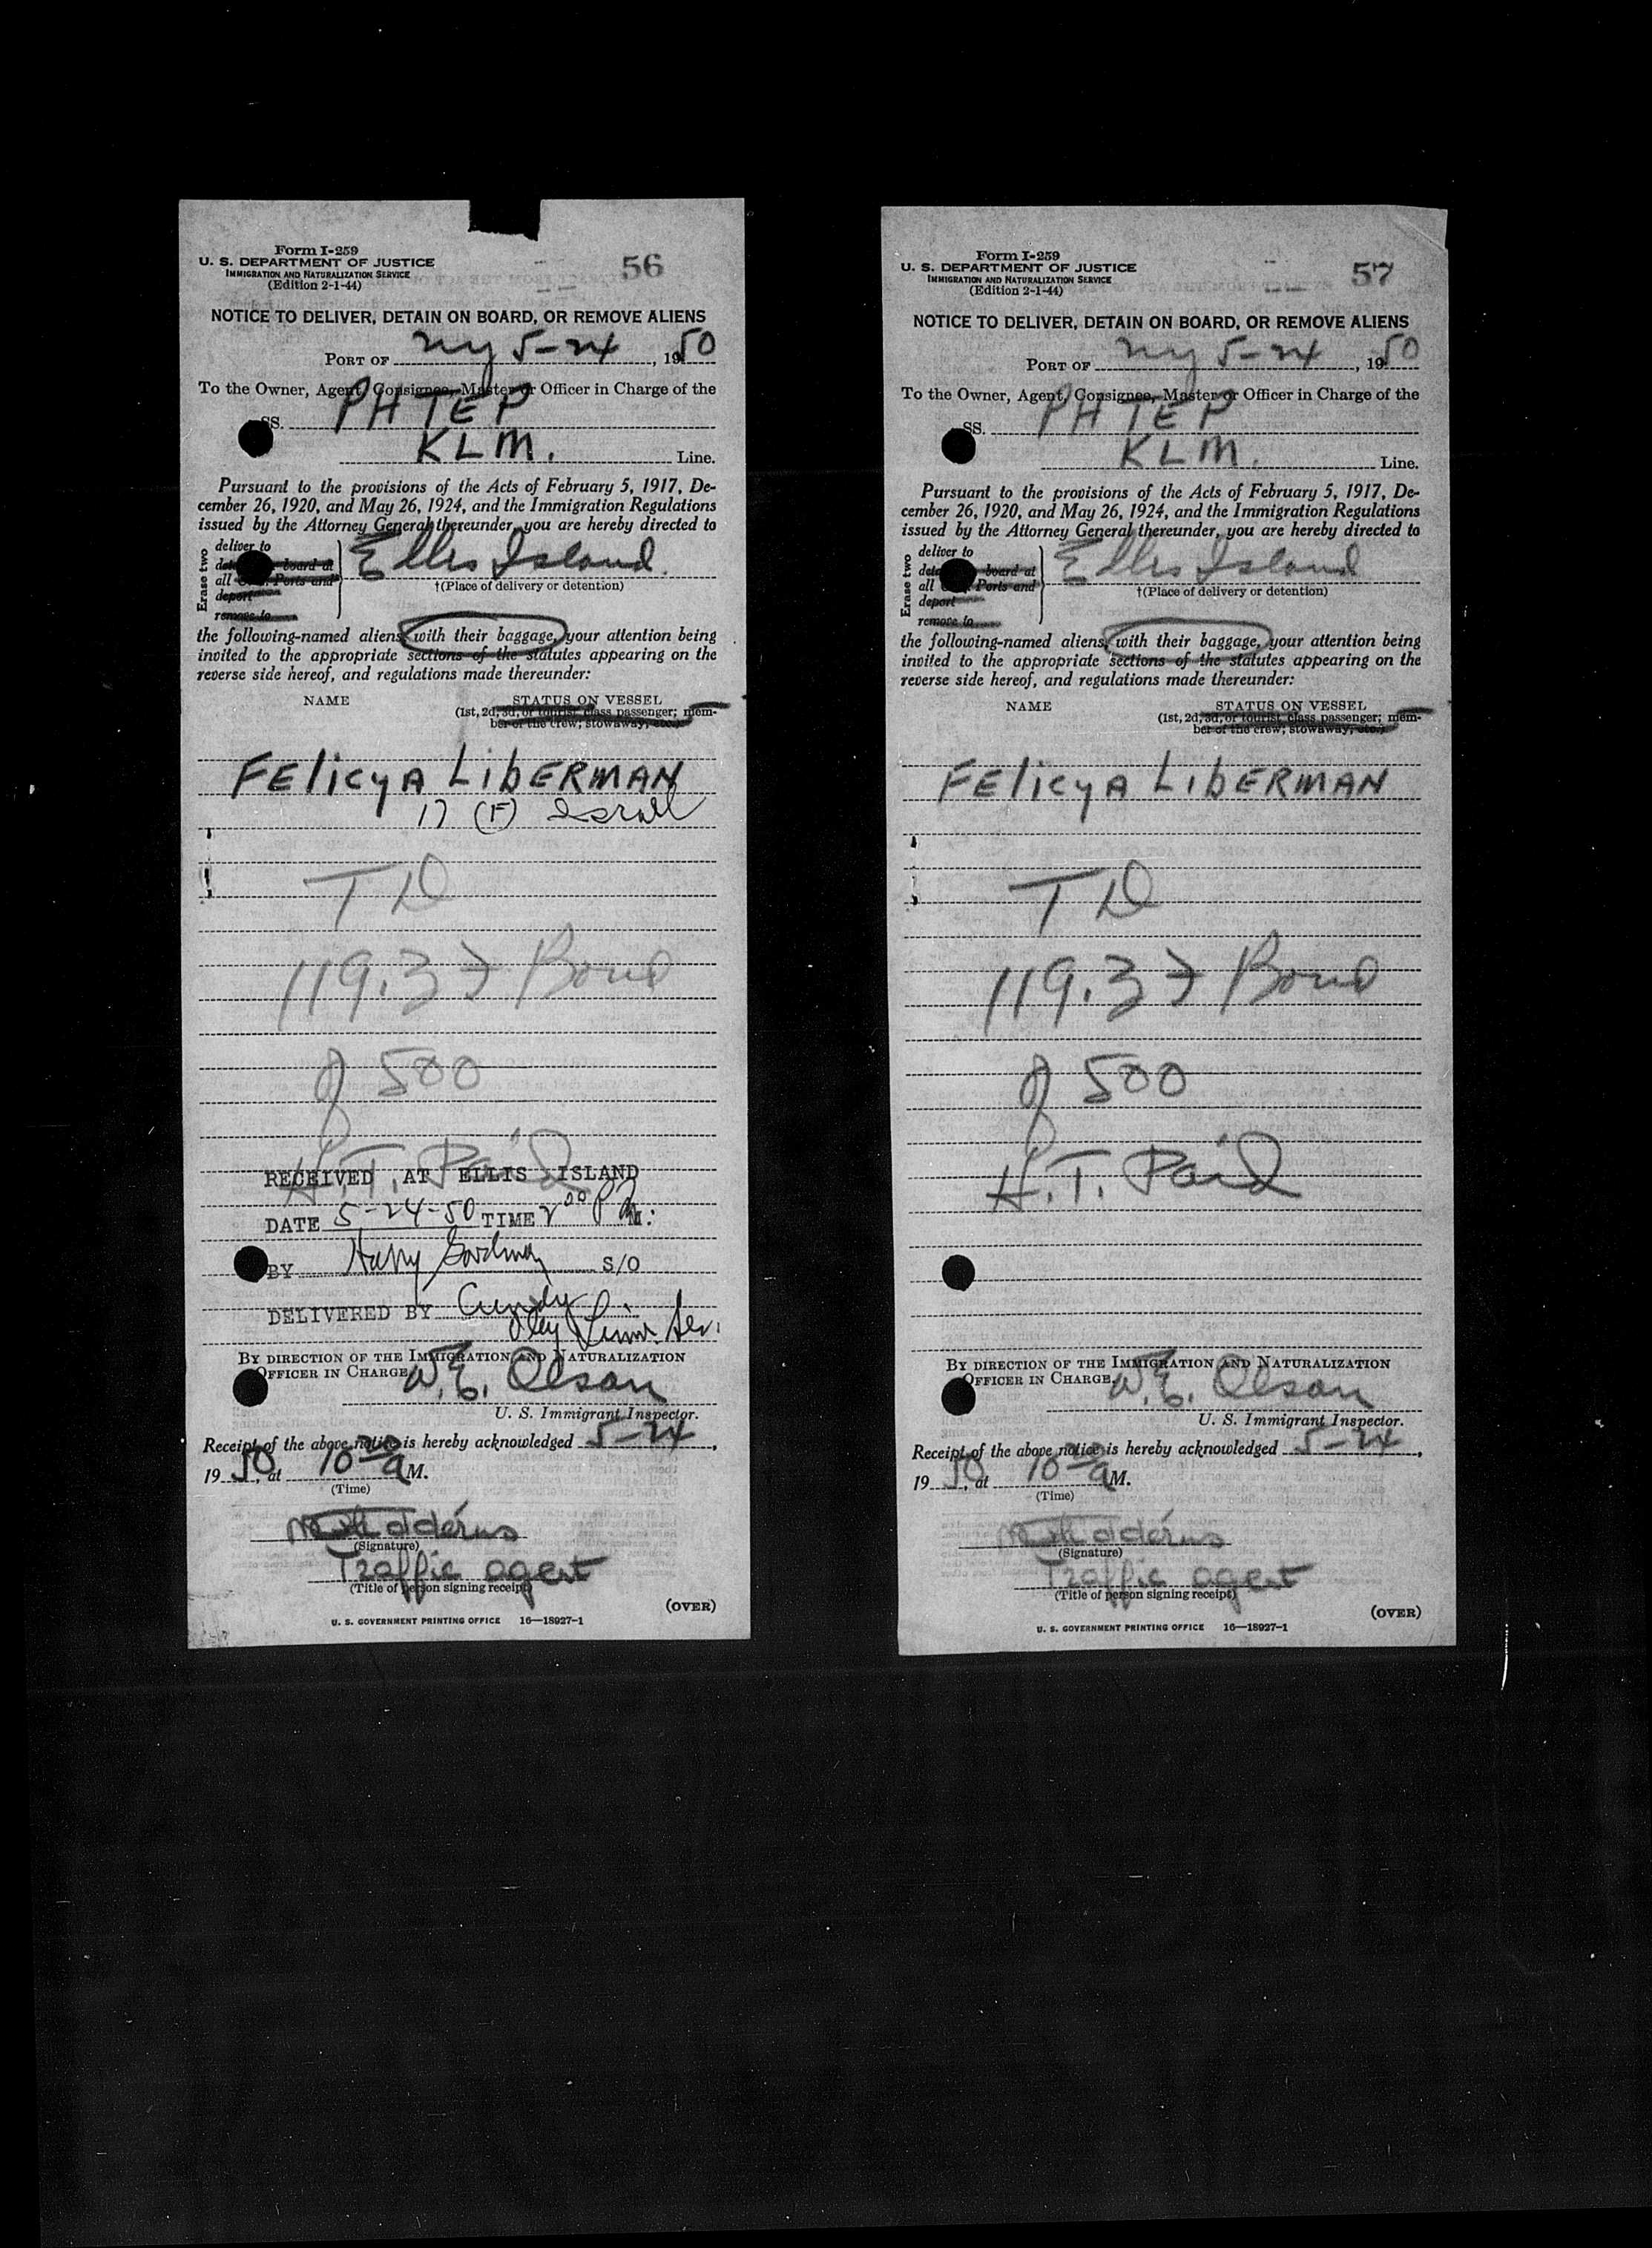 Form I-259
U. S. DEPARTMENT OF JUSTICE
IMMIGRATION AND NATURALIZATION SERVICE
(Edition 2-1-44)
56
NOTICE TO DELIVER, DETAIN ON BOARD, OR REMOVE ALIENS
PORT OF ny 5-24, 1950
To the Owner, Agent, Consignee, Master or Officer in Charge of the
SS. PHTEP
KLM. Line.
Pursuant to the provisions of the Acts of February 5, 1917, De-
cember 26, 1920, and May 26, 1924, and the Immigration Regulations
issued by the Attorney General thereunder, you are hereby directed to
Erase two
deliver to
board at
all Ports and
deport
remove to
Ellis Island.
†(Place of delivery or detention)
the following-named aliens, with their baggage, your attention being
invited to the appropriate sections of the statutes appearing on the
reverse side hereof, and regulations made thereunder:
NAME STATUS ON VESSEL
(1st, 2d, 3d, or tourist class passenger; mem-
ber of the crew; stowaway, etc.)
FElicyA LibERMAN
17 (F) Israel
TD
119.37 Bond
of 500
H.T. Paid
RECEIVED AT ELLIS ISLAND
DATE 5-24-50 TIME 2 00 P M:
BY Harry S/O
DELIVERED BY
BY DIRECTION OF THE IMMIGRATION AND NATURALIZATION
OFFICER IN CHARGE W.E. Olson
U. S. Immigrant Inspector.
Receipt of the above notice is hereby acknowledged 5-24,
1950, at 10 20 a M.
(Time)
(Signature)
Traffic agent
(Title of person signing receipt)
(OVER)
U. S. GOVERNMENT PRINTING OFFICE 16—18927-1
Form I-259
U. S. DEPARTMENT OF JUSTICE
IMMIGRATION AND NATURALIZATION SERVICE
(Edition 2-1-44)
57
NOTICE TO DELIVER, DETAIN ON BOARD, OR REMOVE ALIENS
PORT OF ny 5-24, 1950
To the Owner, Agent, Consignee, Master or Officer in Charge of the
SS. PHTEP
KLM. Line.
Pursuant to the provisions of the Acts of February 5, 1917, De-
cember 26, 1920, and May 26, 1924, and the Immigration Regulations
issued by the Attorney General thereunder, you are hereby directed to
Erase two
deliver to
board at
all Ports and
deport
remove to
Ellis Island
†(Place of delivery or detention)
the following-named aliens, with their baggage, your attention being
invited to the appropriate sections of the statutes appearing on the
reverse side hereof, and regulations made thereunder:
NAME STATUS ON VESSEL
(1st, 2d, 3d, or tourist class passenger; mem-
ber of the crew; stowaway, etc.)
FElicyA LibERMAN
TD
119.37 Bond
of 500
H.T. Paid
BY DIRECTION OF THE IMMIGRATION AND NATURALIZATION
OFFICER IN CHARGE. W.E. Olson
U. S. Immigrant Inspector.
Receipt of the above notice is hereby acknowledged 5-24,
1950, at 10 20 a M.
(Time)
(Signature)
Traffic agent
(Title of person signing receipt)
(OVER)
U. S. GOVERNMENT PRINTING OFFICE 16—18927-1